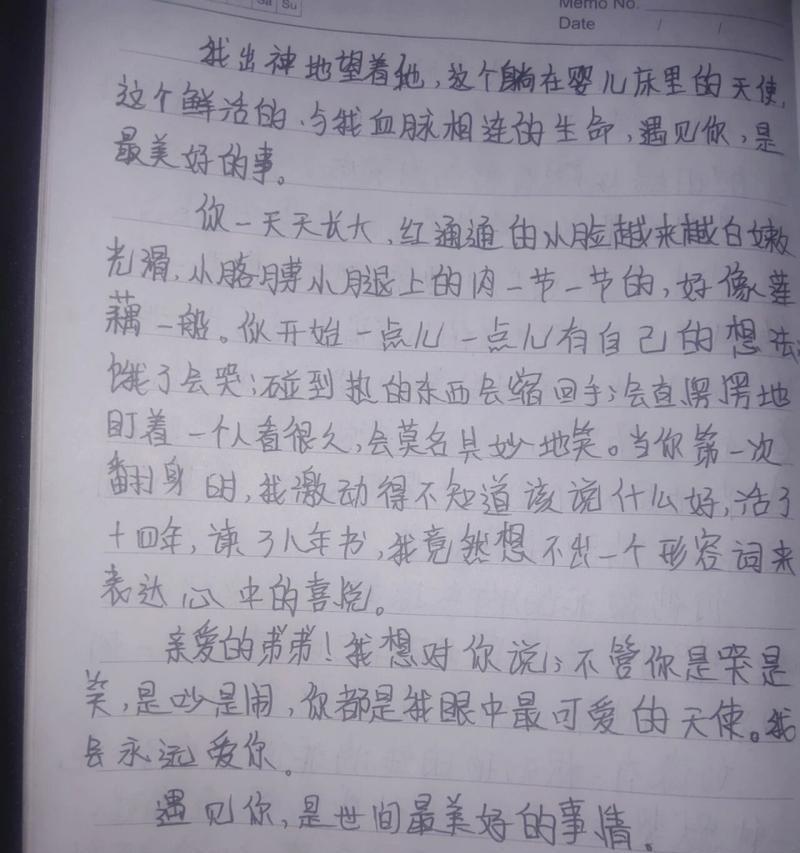 Sa Su
Memo No.
Date / /
我出神地望着他,这个躺在婴儿床里的天使,
这个鲜活的、与我血脉相连的生命,遇见你,是
最美好的事。
你一天天长大,红通通的小脸越来越白嫩
光滑,小胳膊小腿上的肉一节一节的,好像莲
藕一般。你开始一点儿一点儿有自己的想法:
饿了会哭;碰到热的东西会缩回手;会直愣愣地
盯着一个人看很久,会莫名其妙地笑。当你第一次
翻身时,我激动得不知道该说什么好,活了
十四年,读了八年书,我竟然想不出一个形容词来
表达心中的喜悦。
亲爱的弟弟!我想对你说:不管你是哭是
笑,是吵是闹,你都是我眼中最可爱的天使。我
会永远爱你。
遇见你,是世间最美好的事情。